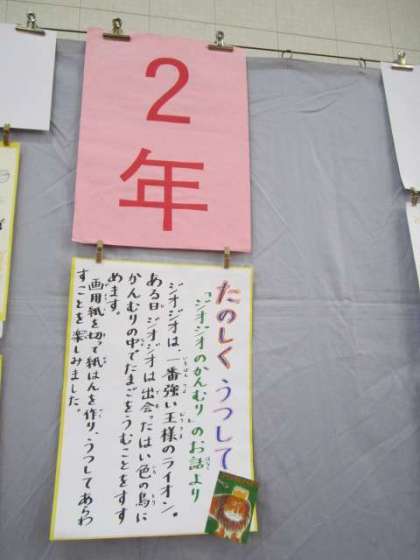 2年
たのしく うつして
「ジオジオのかんむり」のお話より
ジオジオは、一番強い王様のライオン。
ある日ジオジオは出会ったはい色の鳥に
かんむりの中でたまごをうむことをすす
めます。
画用紙を切って紙はんを作り、うつしてあらわ
すことを楽しみました。